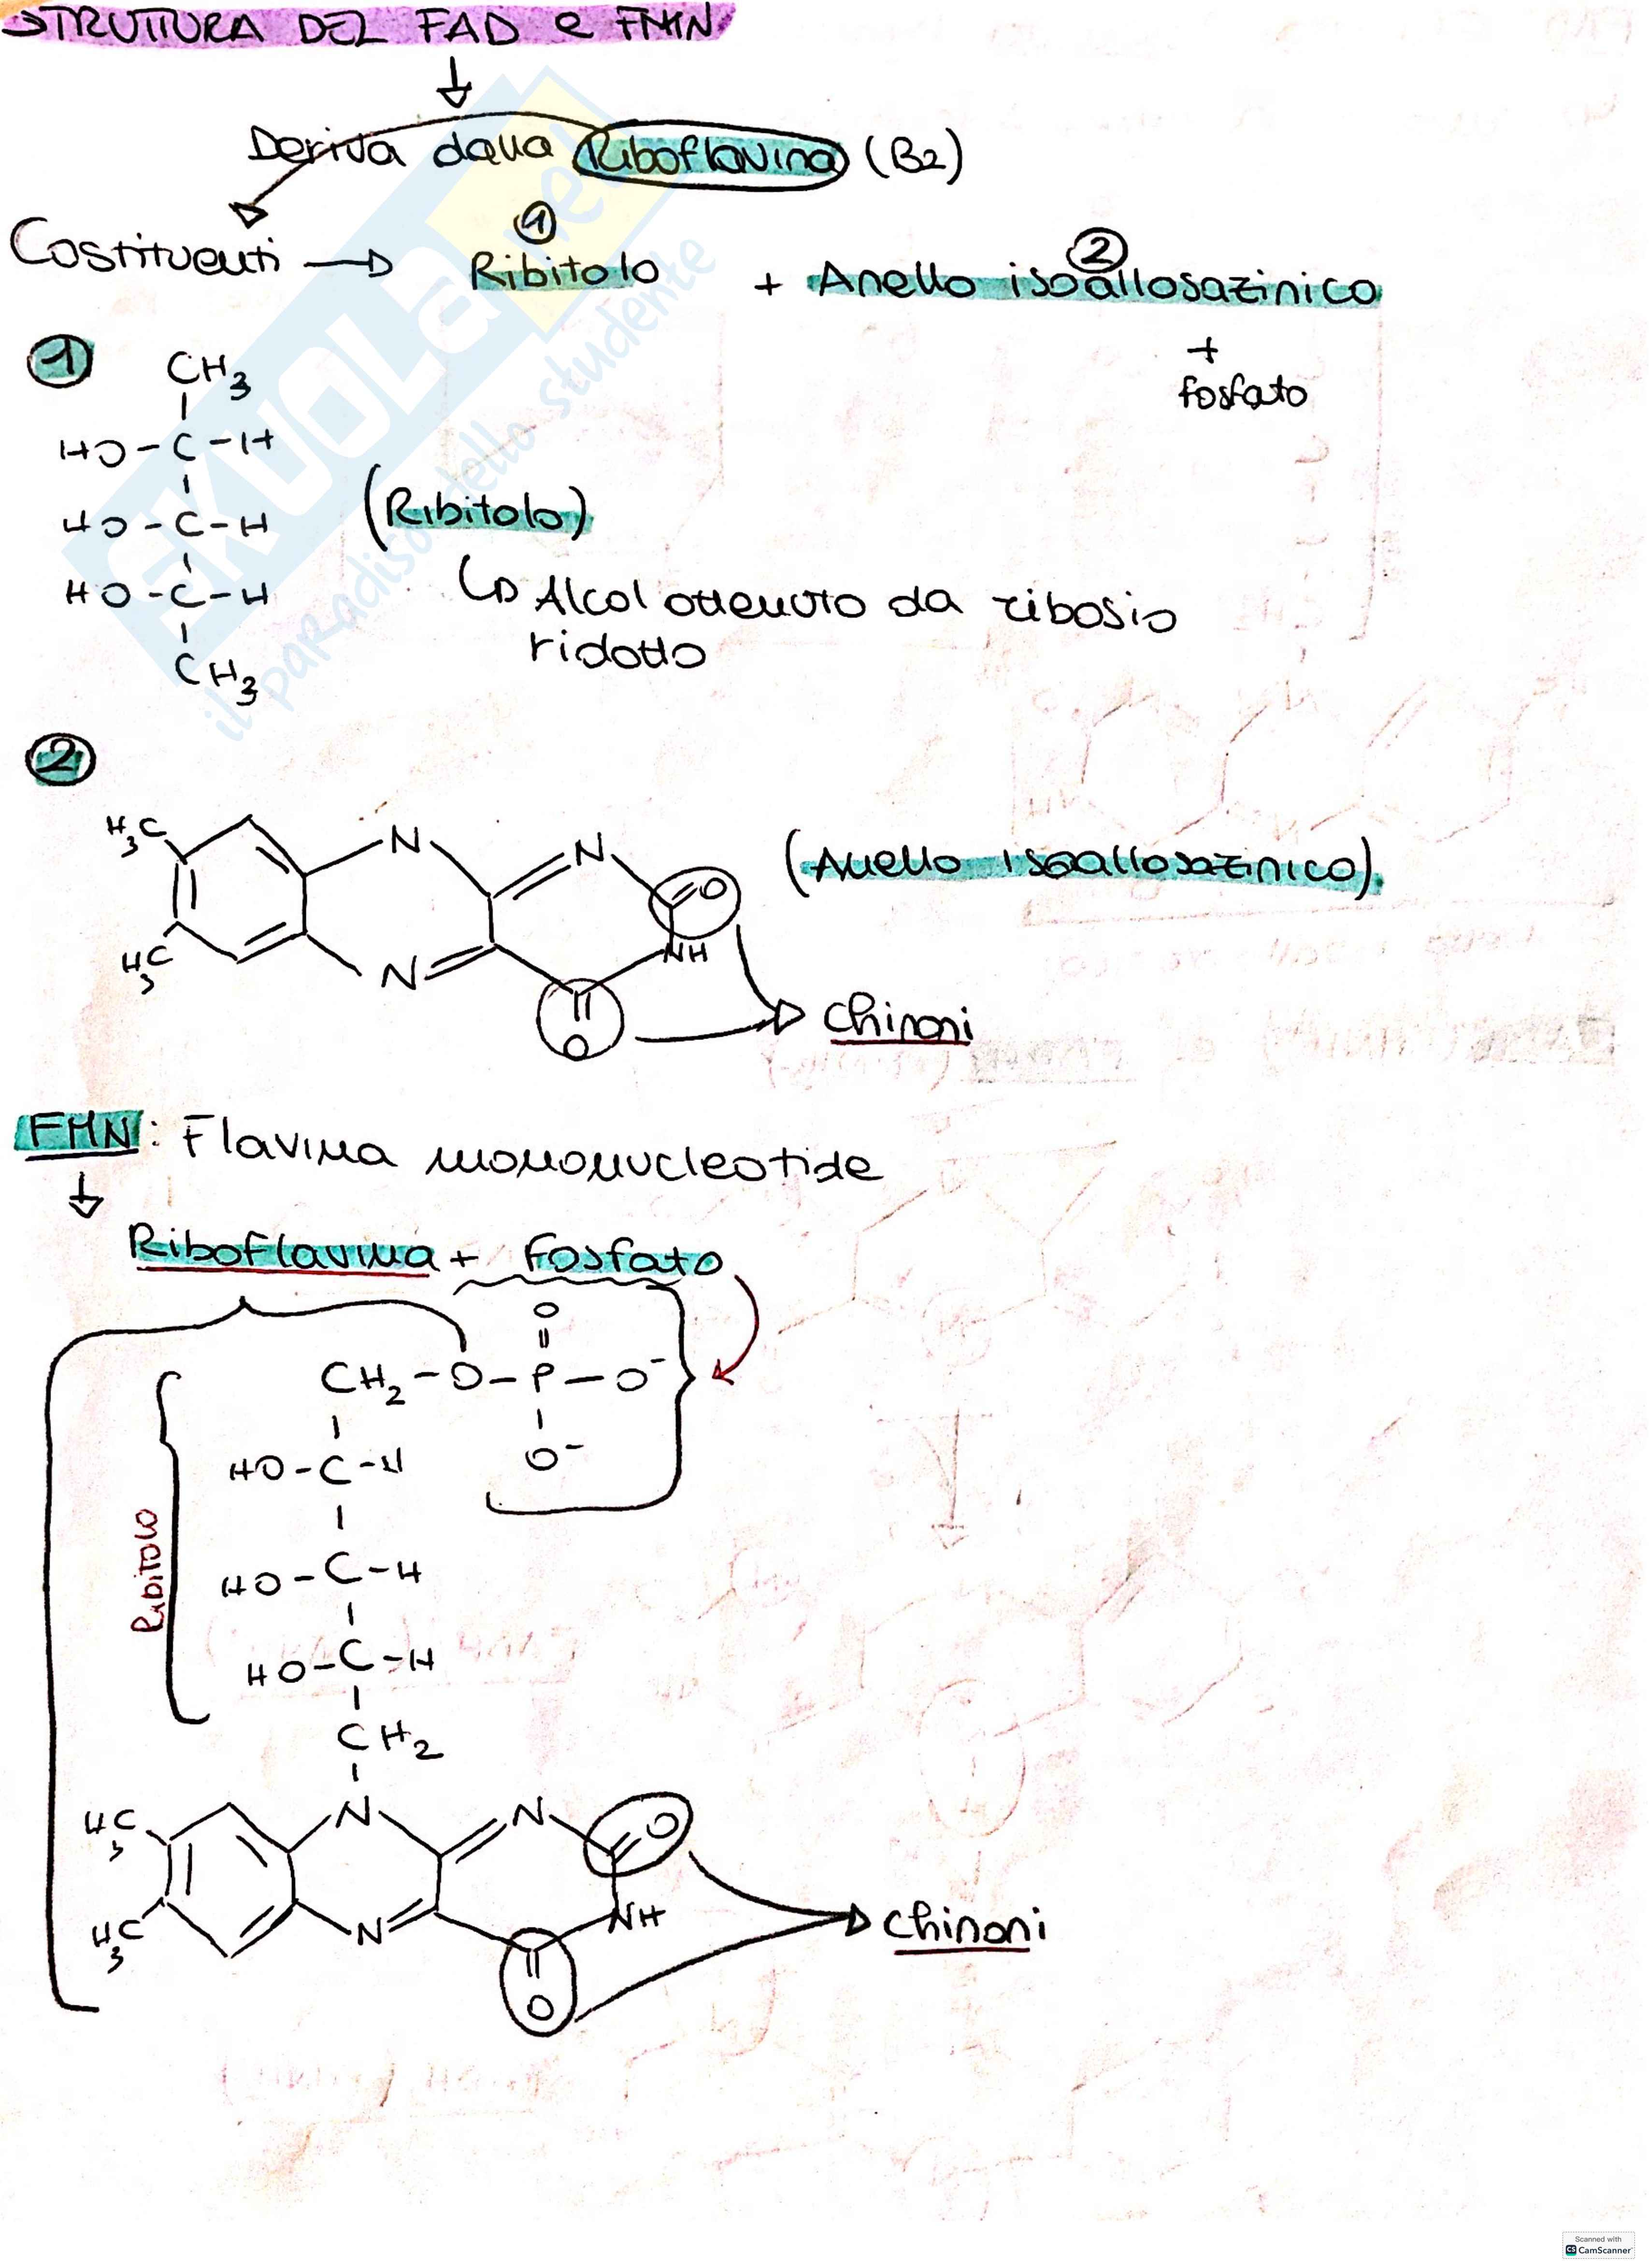 STRUTTURA DEL FAD e FMN
Deriva dalla Riboflavina (B2)
Costituenti → ① Ribitolo + ② Anello isoallosazinico
+
fosfato
①
CH3
HO-C-H
HO-C-H
HO-C-H
CH3
(Ribitolo)
↳ Alcol ottenuto da ribosio
ridotto
②
H3C
H3C
N
N
N
O
NH
O
(Anello isoallosazinico).
chinoni
FMN: Flavina mononucleotide
Riboflavina + Fosfato
O
CH2-O-P-O⁻
O⁻
HO-C-H
HO-C-H
HO-C-H
CH2
Ribitolo
H3C
H3C
N
N
N
O
NH
O
chinoni
SKUOLA.net
il paradiso dello studente
Scanned with
CS CamScanner